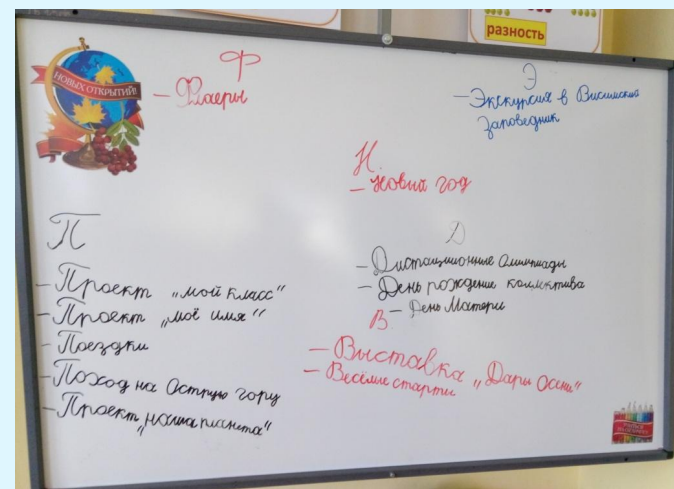 разность
НОВЫХ ОТКРЫТИЙ!
Ф
– Флаеры
Э
– Экскурсия в Висимский
заповедник
Н.
– Новый год
П
– Проект „мой класс“
– Проект „моё имя“
– Поездки
– Поход на Острую гору
– Проект
„наша планета“
Д
– Дистационные олимпиады
– День рождение коллектива
– День Матери
В.
– Выставка „Дары Осени“
– Весёлые старты